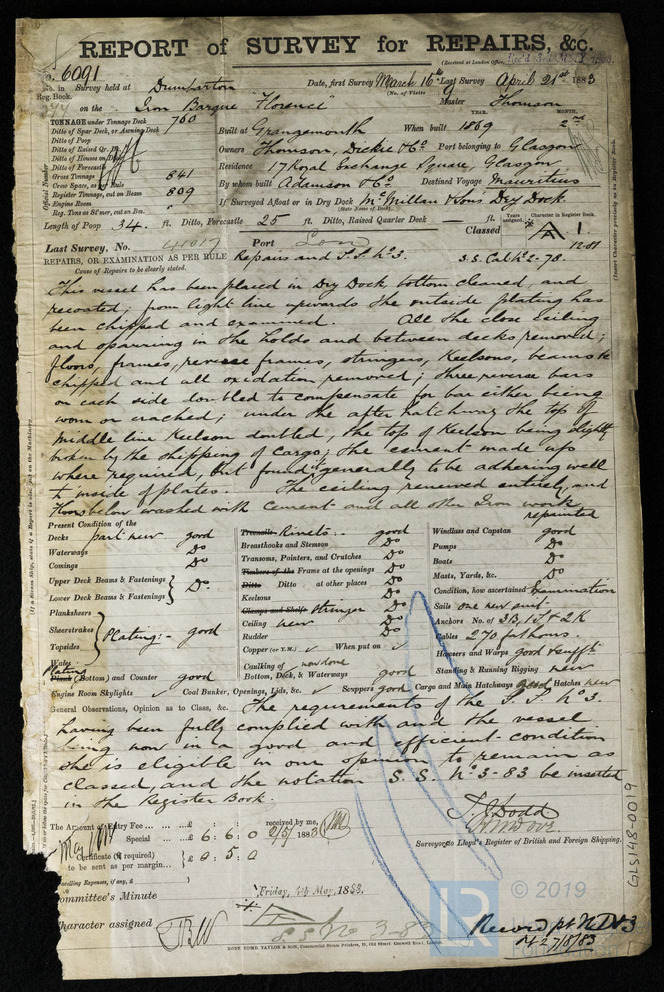 REPORT of SURVEY for REPAIRS, &c.
(Received at London Office,
No. 6091
No. in Reg. Book. Survey held at Dumbarton Date, first Survey March 16th Last Survey April 21st 1883
(No. of Visits 9
on the Iron Barque "Florence" Master Thomson
TONNAGE under Tonnage Deck 760
Ditto of Spar Deck, or Awning Deck
Ditto of Poop
Ditto of Raised Qr. Dk.
Ditto of Houses on Deck
Ditto of Forecastle
Gross Tonnage 841
Crew Space, as Rule
Register Tonnage, cut on Beam 809
Engine Room
Reg. Tons as St'mer, cut on Bm.
Official Number
YEAR. MONTH.
Built at Grangemouth When built 1869 2nd
Owners Thomson, Dickie & Co Port belonging to Glasgow
Residence 17 Royal Exchange Square, Glasgow
By whom built Adamson & Co Destined Voyage Mauritius
If Surveyed Afloat or in Dry Dock McMillan & Sons Dry Dock
(State Name of Dock.)
Length of Poop 34 ft. Ditto, Forecastle 25 ft. Ditto, Raised Quarter Deck — ft.
Years assigned Character in Register Book.
Classed A 1.
12.81
(Insert Character precisely as in Register Book.
Last Survey, No. 41017 Port Lon
REPAIRS, OR EXAMINATION AS PER RULE Repairs and S.S. No 3. S.S. Cal No 2-78.
Cause of Repairs to be clearly stated.
This vessel has been placed in Dry Dock, bottom cleaned, and
recoated, from light line upwards the outside plating has
been chipped and examined. All the close ceiling
and sparring in the holds and between decks removed;
floors, frames, reverse frames, stringers, Keelsons, beams &c
chipped and all oxidation removed; three reverse bars
on each side doubled to compensate for bar either being
worn or cracked; under the after hatchway the top of
middle line Keelson doubled, the top of Keelson being slightly
broken by the shipping of cargo; the cement made up
where required, but found generally to be adhering well
to inside of plates. The ceiling renewed entirely, and
Floors below washed with cement and all other Iron work
repainted
(If a Steam Ship, state if a Report is sent on the Machinery.
Present Condition of the
Decks part new good
Waterways Do
Comings Do
Upper Deck Beams & Fastenings } Do.
Lower Deck Beams & Fastenings
Planksheers
Sheerstrakes } Plating:- good
Topsides
Wales
Plating
Plank (Bottom) and Counter good
Treenails Rivets.. good
Breasthooks and Stemson Do
Transoms, Pointers, and Crutches Do
Timbers of the Frame at the openings Do
Ditto Ditto at other places Do
Keelsons Do
Clamps and Shelfs Stringer Do
Ceiling new Do
Rudder Do
Copper (or Y.M.) ✓ When put on ✓
Caulking of now done
Bottom, Deck, & Waterways good
Windlass and Capstan good
Pumps Do
Boats Do
Masts, Yards, &c. Do
Condition, how ascertained Examination
Sails one new suit.
Anchors No. of 3B, 1S & 2K
Cables 270 fathoms.
Hawsers and Warps good & sufft.
Standing & Running Rigging new
Engine Room Skylights ✓ Coal Bunker, Openings, Lids, &c. ✓ Scuppers good Cargo and Main Hatchways good Hatches new
General Observations, Opinion as to Class, &c. The requirements of the S.S. No 3.
having been fully complied with and the vessel
being now in a good and efficient condition
she is eligible in our opinion to remain as
classed, and the notation S.S. No 3-83 be inserted
in the Register Book.
The Amount of Entry Fee ... £ : : received by me,
Special ... £ 6 : 6 : 0 2/5/1883
Certificate (if required) £ 0 : 5 : 0
to be sent as per margin...
Travelling Expenses, if any, £
T. J. Dodd
Surveyor to Lloyd's Register of British and Foreign Shipping.
Committee's Minute Friday, 4th May, 1883.
Character assigned A
S.S No 3-83
Record pt NDB 3
27/8/83
ROBT. EDMD. TAYLOR & SON, Commercial Steam Printers, 19, Old Street Goswell Road, London.
GLS148-0019
LR © 2019